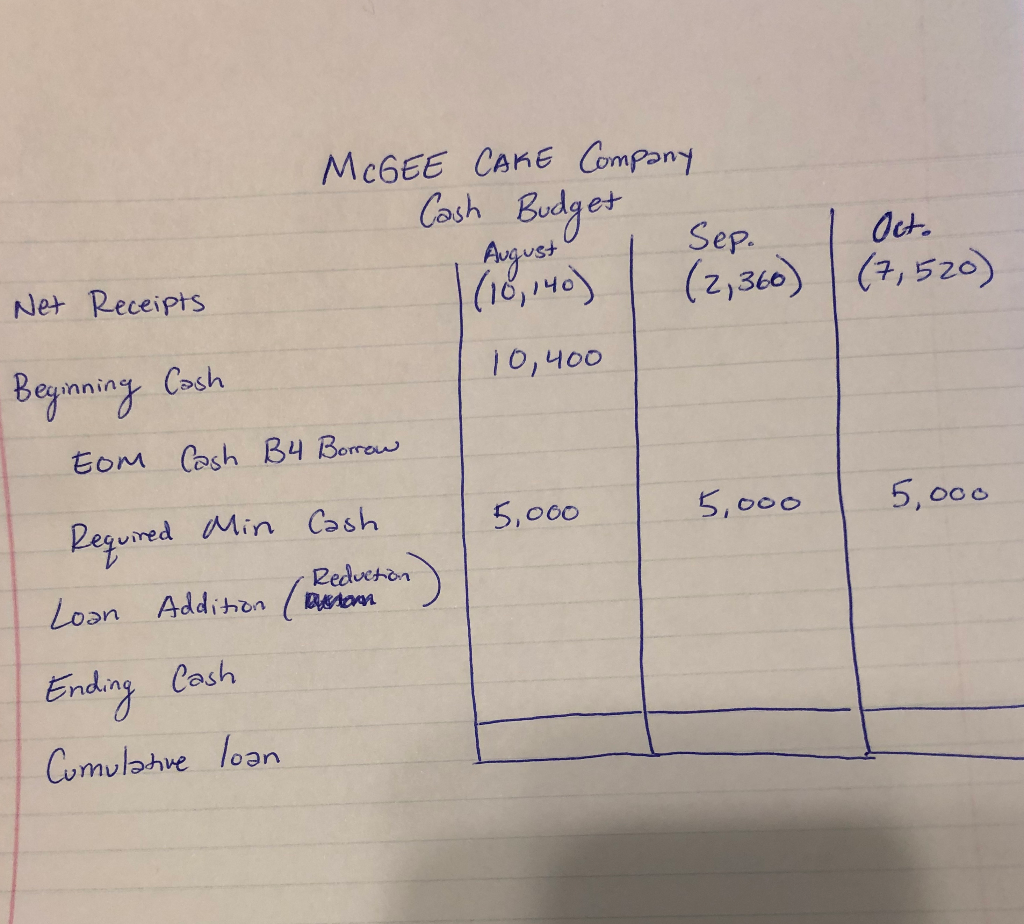 McGEE CAKE Company
Cash Budget
August Sep. Oct.
Net Receipts (10,140) (2,360) (7,520)
Beginning Cash 10,400
EOM Cash B4 Borrow
Required Min Cash 5,000 5,000 5,000
Loan Addition (Reduction)
Ending Cash
Cumulative loan